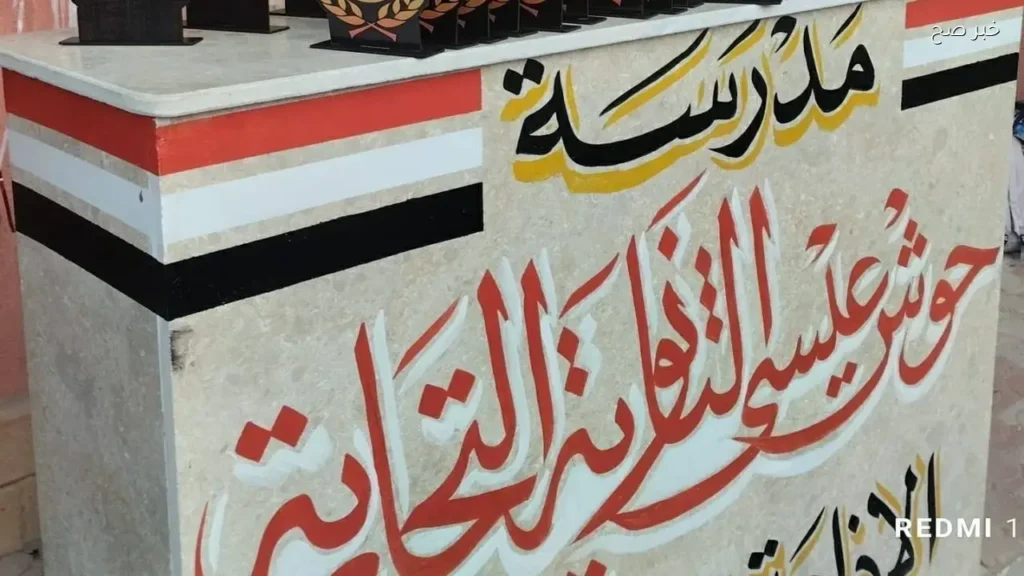 خبر صح
مدرسة
حوش عيسى الثانوية التجارية
REDMI 1